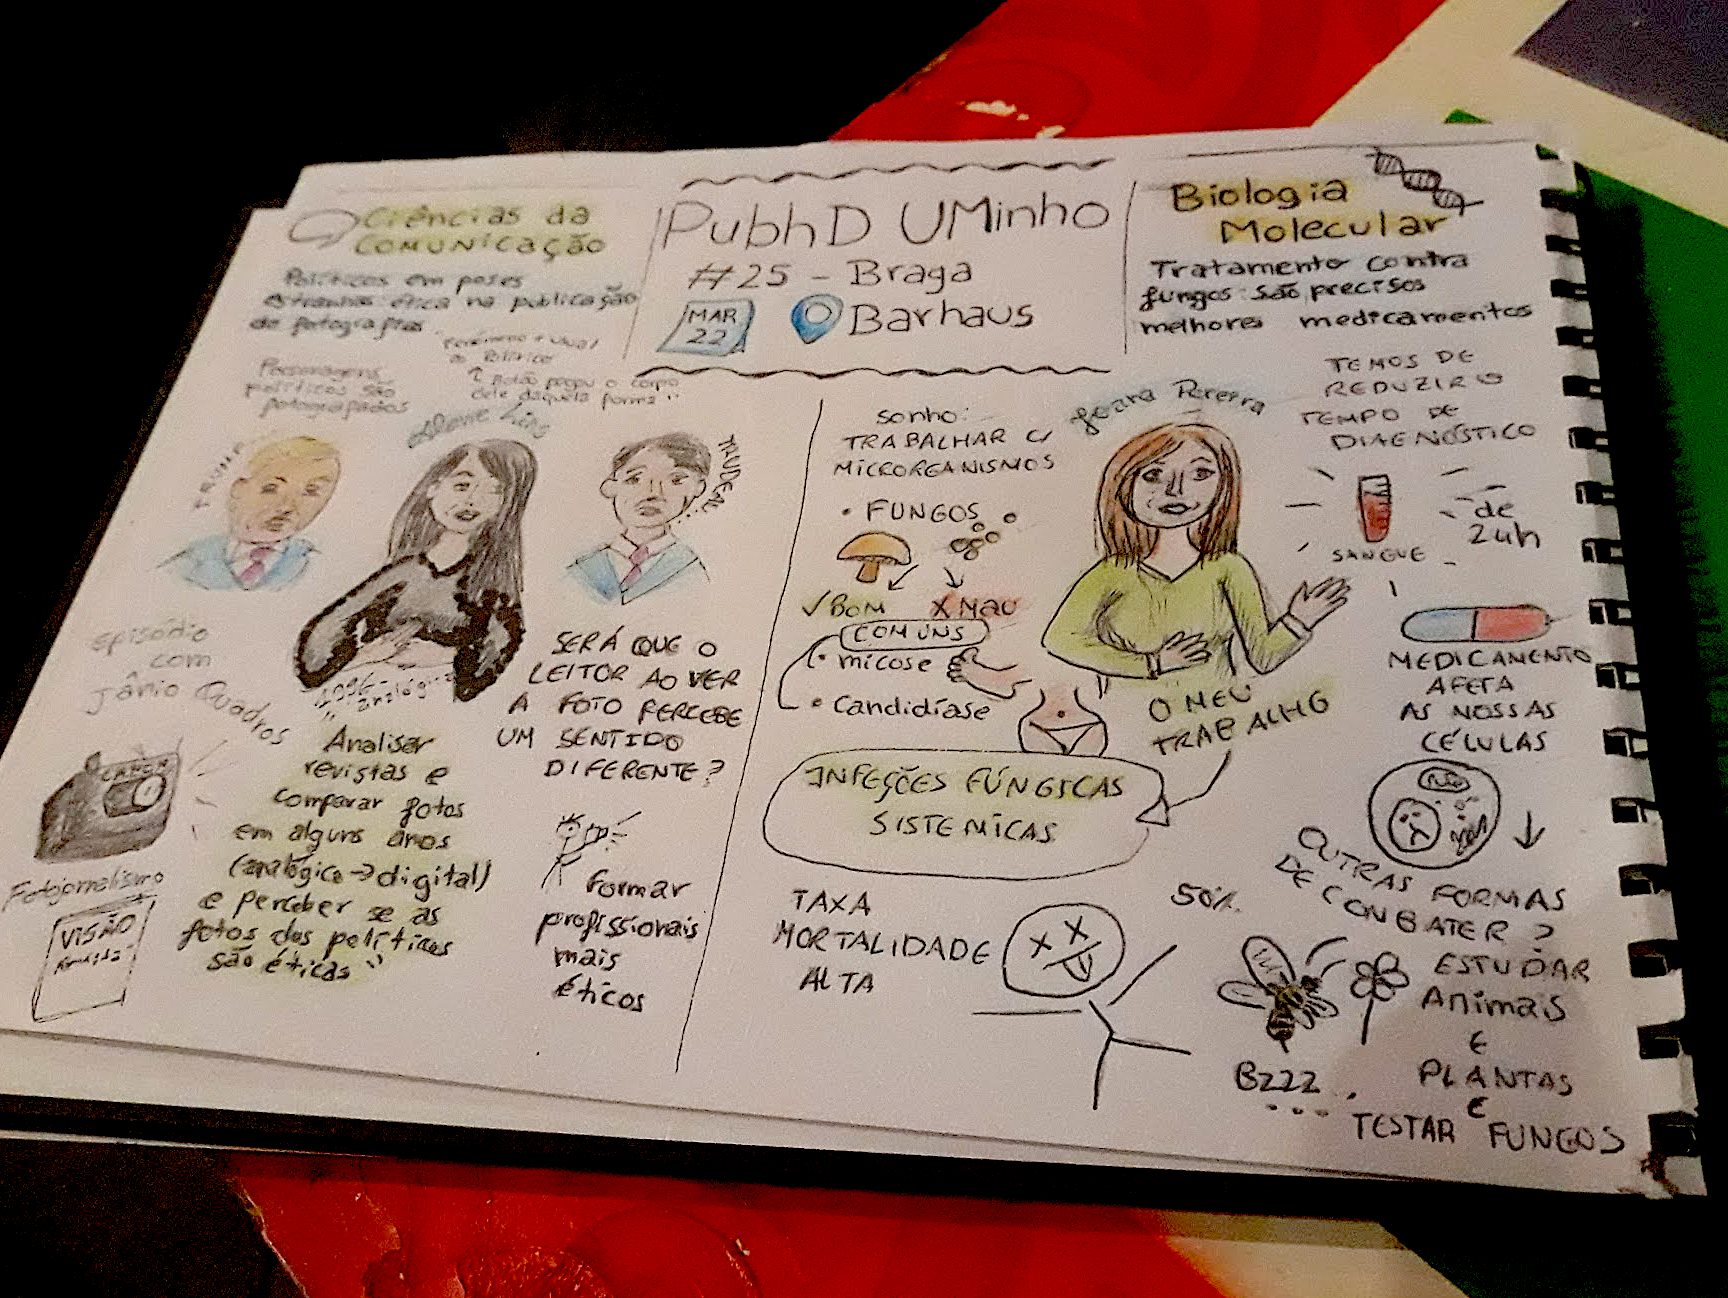 Ciências da
comunicação
Políticos em poses
estranhas: ética na publicação
de fotografias
Personagens
políticos são
fotografados
"Botão pegou o corpo
dele daquela forma"
TRUMP
TRUDEAU
episódio
com
Jânio Quadros
CANON
Fotojornalismo
VISÃO
analógica
"Analisar
revistas e
comparar fotos
em alguns anos
(analógico → digital)
e perceber se as
fotos dos políticos
são éticas"
SERÁ QUE O
LEITOR AO VER
A FOTO PERCEBE
UM SENTIDO
DIFERENTE?
formar
profissionais
mais
éticos
PubhD UMinho
#25 - Braga
MAR
22
Barhaus
Biologia
Molecular
Tratamento contra
fungos: são precisos
melhores medicamentos
sonho:
TRABALHAR C/
MICROREANISMOS
• FUNGOS
√ BOM X MAU
COMUNS
• micose
• Candidíase
Joana Pereira
O MEU
TRABALHO
INFEÇÕES FÚNGICAS
SISTEMICAS
TAXA
MORTALIDADE
ALTA
50%
TEMOS DE
REDUZIR O
TEMPO DE
DIAGNÓSTICO
de
24h
SANGUE
MEDICAMENTO
AFETA
AS NOSSAS
CÉLULAS
NÃO
OUTRAS FORMAS
DE COMBATER?
ESTUDAR
Animais
E
PLANTAS
E
TESTAR FUNGOS
BZZZ...